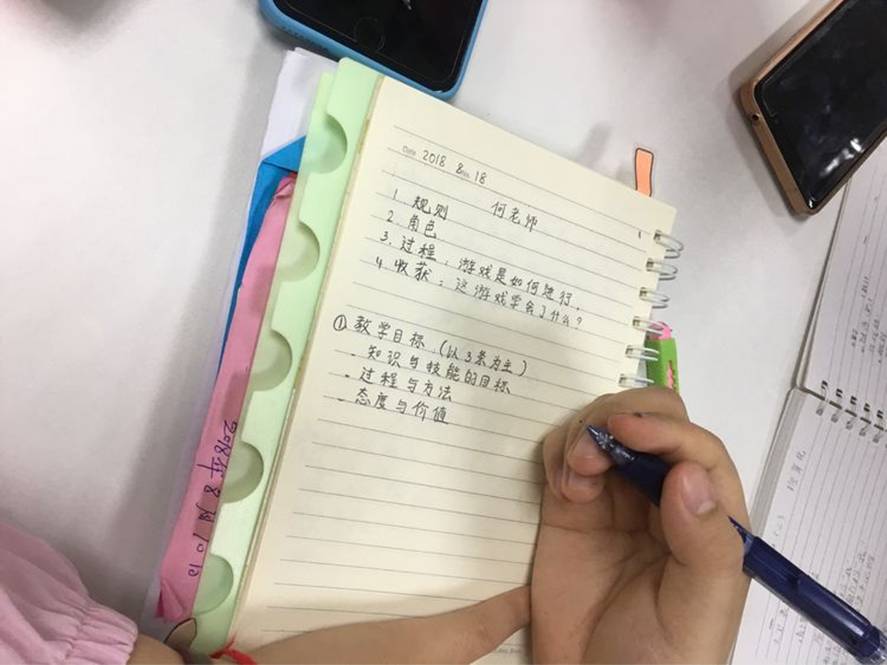 Date 2018 8 No. 18
何老师
1. 规则
2. 角色
3. 过程：游戏是如何进行.
4. 收获：这游戏学会了什么？
① 教学目标（以3条为主）
- 知识与技能的目标
- 过程与方法
- 态度与价值
2018年8月10日